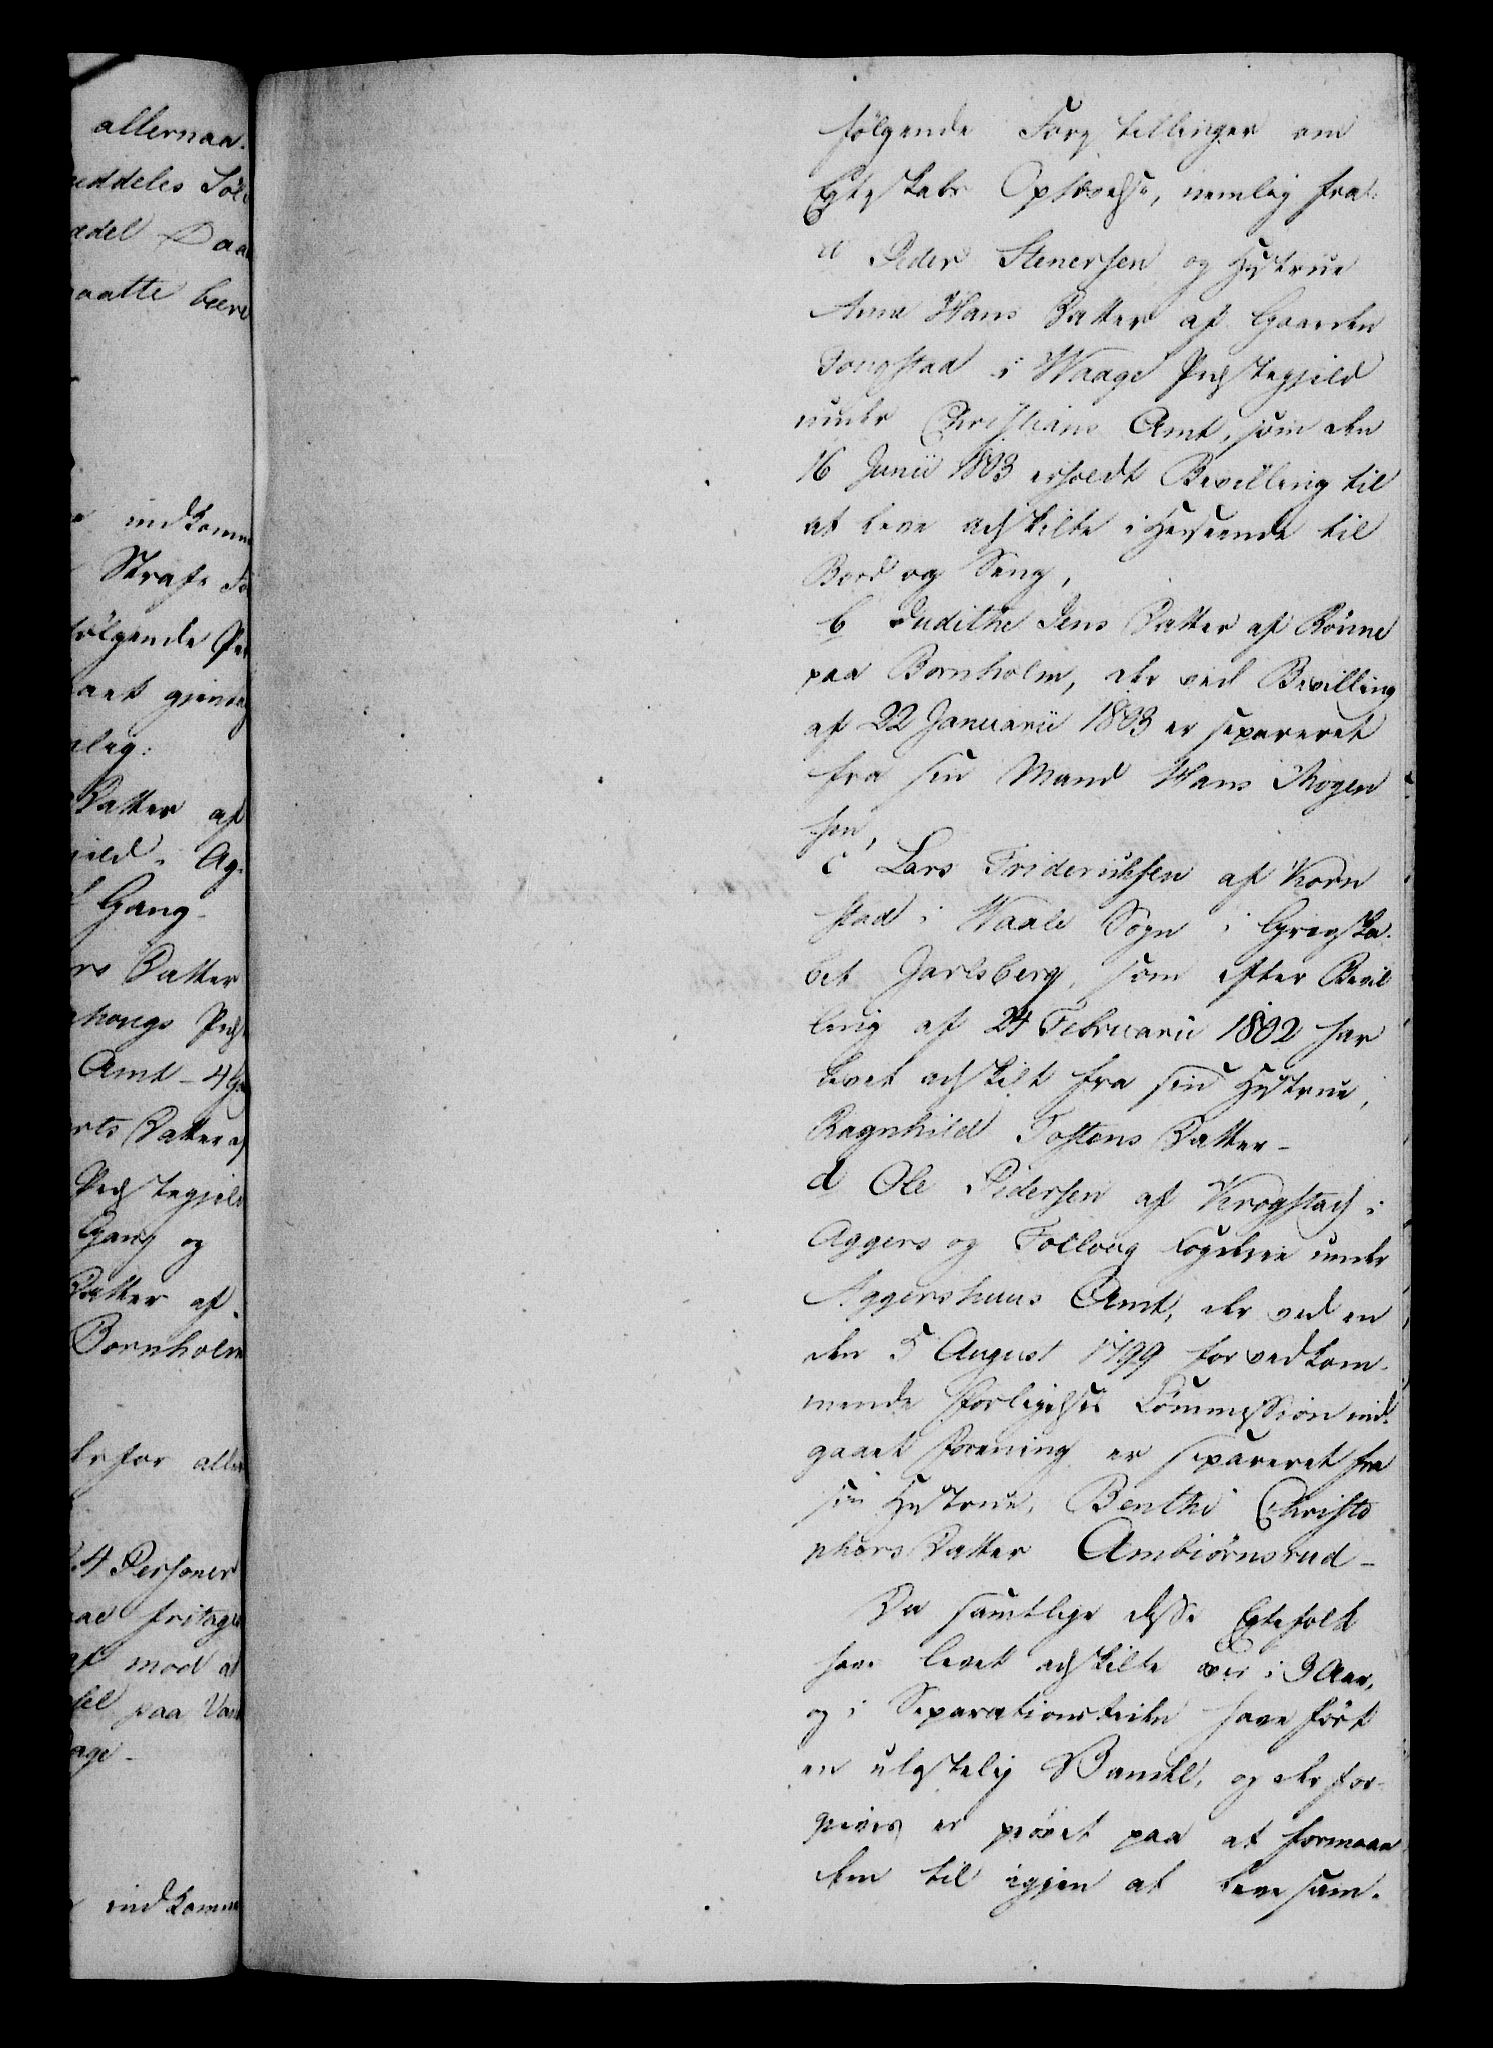 allernaa-
meddeles
paatte bære
indkomm
Straf
følgende Per
gjennem
nlig:
Datter af
jeld. Ag-
Gang-
rs Datter
Amt - 4
Datter af
Præstegjeld
Gang og
Datter af
Bornholm
derfor aller
4 Personer
fritages
mod at
paa Vand
Dage-
indkomme
følgende Forestillinger om
Egteskabs Ophævelse, nemlig fra:
a Peder Stenersen og Hustrue
Anne Hans Datter af Gaarden
Tongstad i Waage Præstegjeld
under Christians Amt, som den
16 Junii 1803 erholdt Bevilling til
at leve adskilte i Henseende til
Bord og Seng,
b Judithe Jens Datter af Rönne
paa Bornholm, der ved Bevilling
af 22 Januarii 1803 er separeret
fra sin Mand Hans Mogen
sen,
c Lars Friderichsen af Korn
stad i Waale Sogn i Grevska-
bet Jarlsberg, som efter Bevil
ling af 24 Februarii 1802 har
levet adskilt fra sin Hustrue,
Ragnhild Tostens Datter-
d Ole Pedersen af Krogstad i
Aggers og Folloug Fogderie under
Aggershuus Amt, der ved en
den 5 August 1799 for vedkom-
mende Forligelses Commission ind-
gaaet Forening er separeret fra
sin Hustrue, Benthe Christo
phers Datter Ambiörnsrud-
Da samtlige disse Egtefolk
have levet adskilte over i 3 Aar,
og i Separationstiden have ført
en ulastelig Vandel, og der for-
gieves er prøvet paa at formaae
dem til igjen at leve sam-